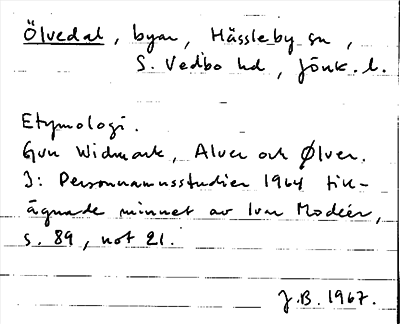 Ölvedal, byar, Hässleby sn,
S. Vedbo hd, Jönk. l.
Etymologi.
Gun Widmark, Alver och Ølver.
I: Personnamnsstudier 1964 till-
ägnade minnet av Ivar Modéer,
s. 89, not 21.
J.B. 1967.